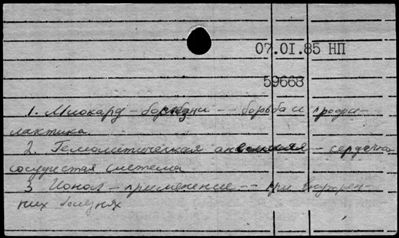 07.01.85 НП
59668
1. Миокард - болезни -- борьба и профи-
лактика
2. Гемолитическая анемия - сердечно
сосудистая система
3 Ионол - применение -- при внутрен-
них болезнях